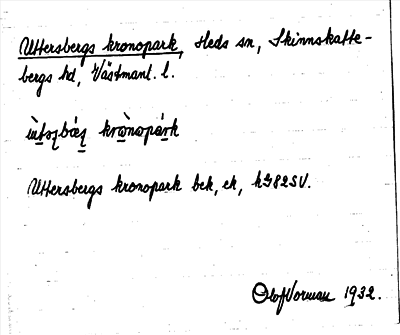 Uttersbergs kronopark, Heds sn, Skinnskatte-
bergs hd, Västmanl. l.
Uttersbergs kronopark bek, ek, hG82SV.
Olof Vorman 1932.